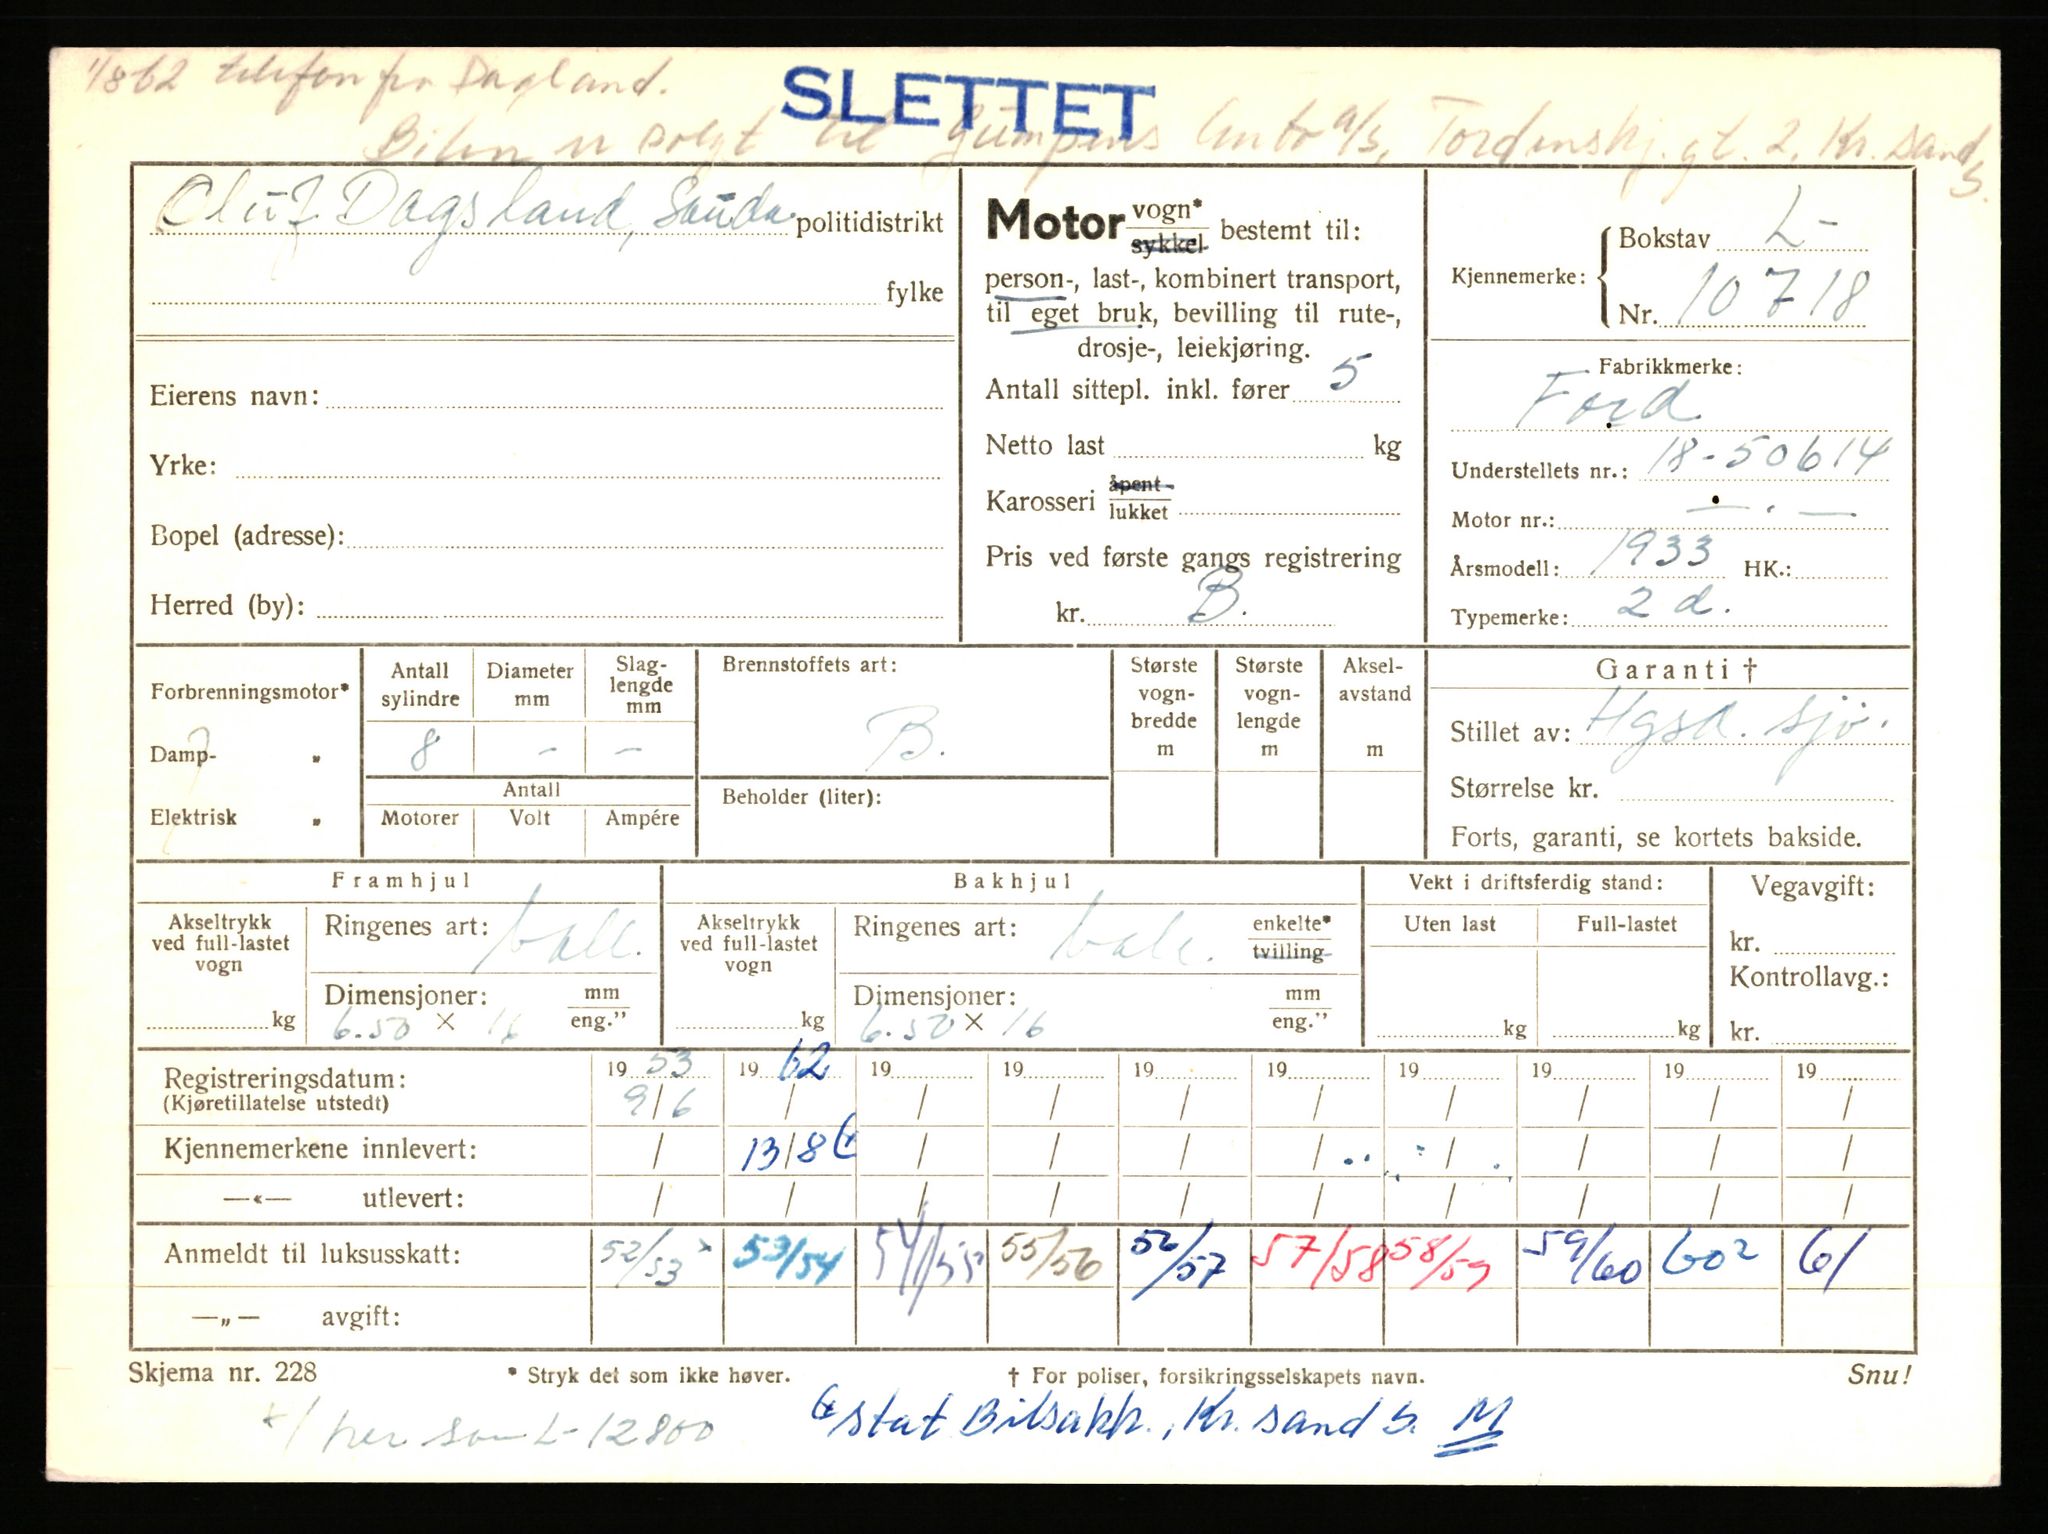 1/8 62 telefon fra Dagsland.
SLETTET
Bilen er solgt til Gumpens Auto a/s, Tordenskj. gt. 2. Kr.sand S.
Oluf Dagsland, Sauda politidistrikt
fylke
Eierens navn:
Yrke:
Bopel (adresse):
Herred (by):
Motor vogn* sykkel bestemt til:
person-, last-, kombinert transport,
til eget bruk, bevilling til rute-,
drosje-, leiekjøring.
Antall sittepl. inkl. fører 5
Netto last kg
Karosseri åpent lukket
Pris ved første gangs registrering
kr. B.
Kjennemerke: Bokstav L-
Nr. 10718
Fabrikkmerke:
Ford
Understellets nr.: 18-50614
Motor nr.: — . —
Årsmodell: 1933 HK.:
Typemerke: 2 d.
Forbrenningsmotor*
Damp- „
Elektrisk „
Antall sylindre 8
Diameter mm -
Slag-lengde mm -
Antall
Motorer Volt Ampére
Brennstoffets art:
B.
Beholder (liter):
Største vogn-bredde m
Største vogn-lengde m
Aksel-avstand m
Garanti †
Stillet av: Hgsd. sjø.
Størrelse kr.
Forts, garanti, se kortets bakside.
Framhjul
Akseltrykk ved full-lastet vogn kg
Ringenes art: ball.
Dimensjoner: mm eng."
6.50 × 16
Bakhjul
Akseltrykk ved full-lastet vogn kg
Ringenes art: ball. enkelte* tvilling
Dimensjoner: mm eng."
6.50 × 16
Vekt i driftsferdig stand:
Uten last Full-lastet
kg kg
Vegavgift:
kr.
Kontrollavg.:
kr.
Registreringsdatum: 19 53 19 62 19 19 19 19 19 19 19 19
(Kjøretillatelse utstedt) 9/6 / / / / / / / / /
Kjennemerkene innlevert: / 13/8 / / / / / / / /
—«— utlevert: / / / / / / / / / /
Anmeldt til luksusskatt: 52/53 x 53/54 54/55 55/56 56/57 57/58 58/59 59/60 60² 61
—„— avgift:
Skjema nr. 228 * Stryk det som ikke høver. † For poliser, forsikringsselskapets navn. Snu!
x/ her som L-12800
stat Bilsakk., Kr.sand S. M